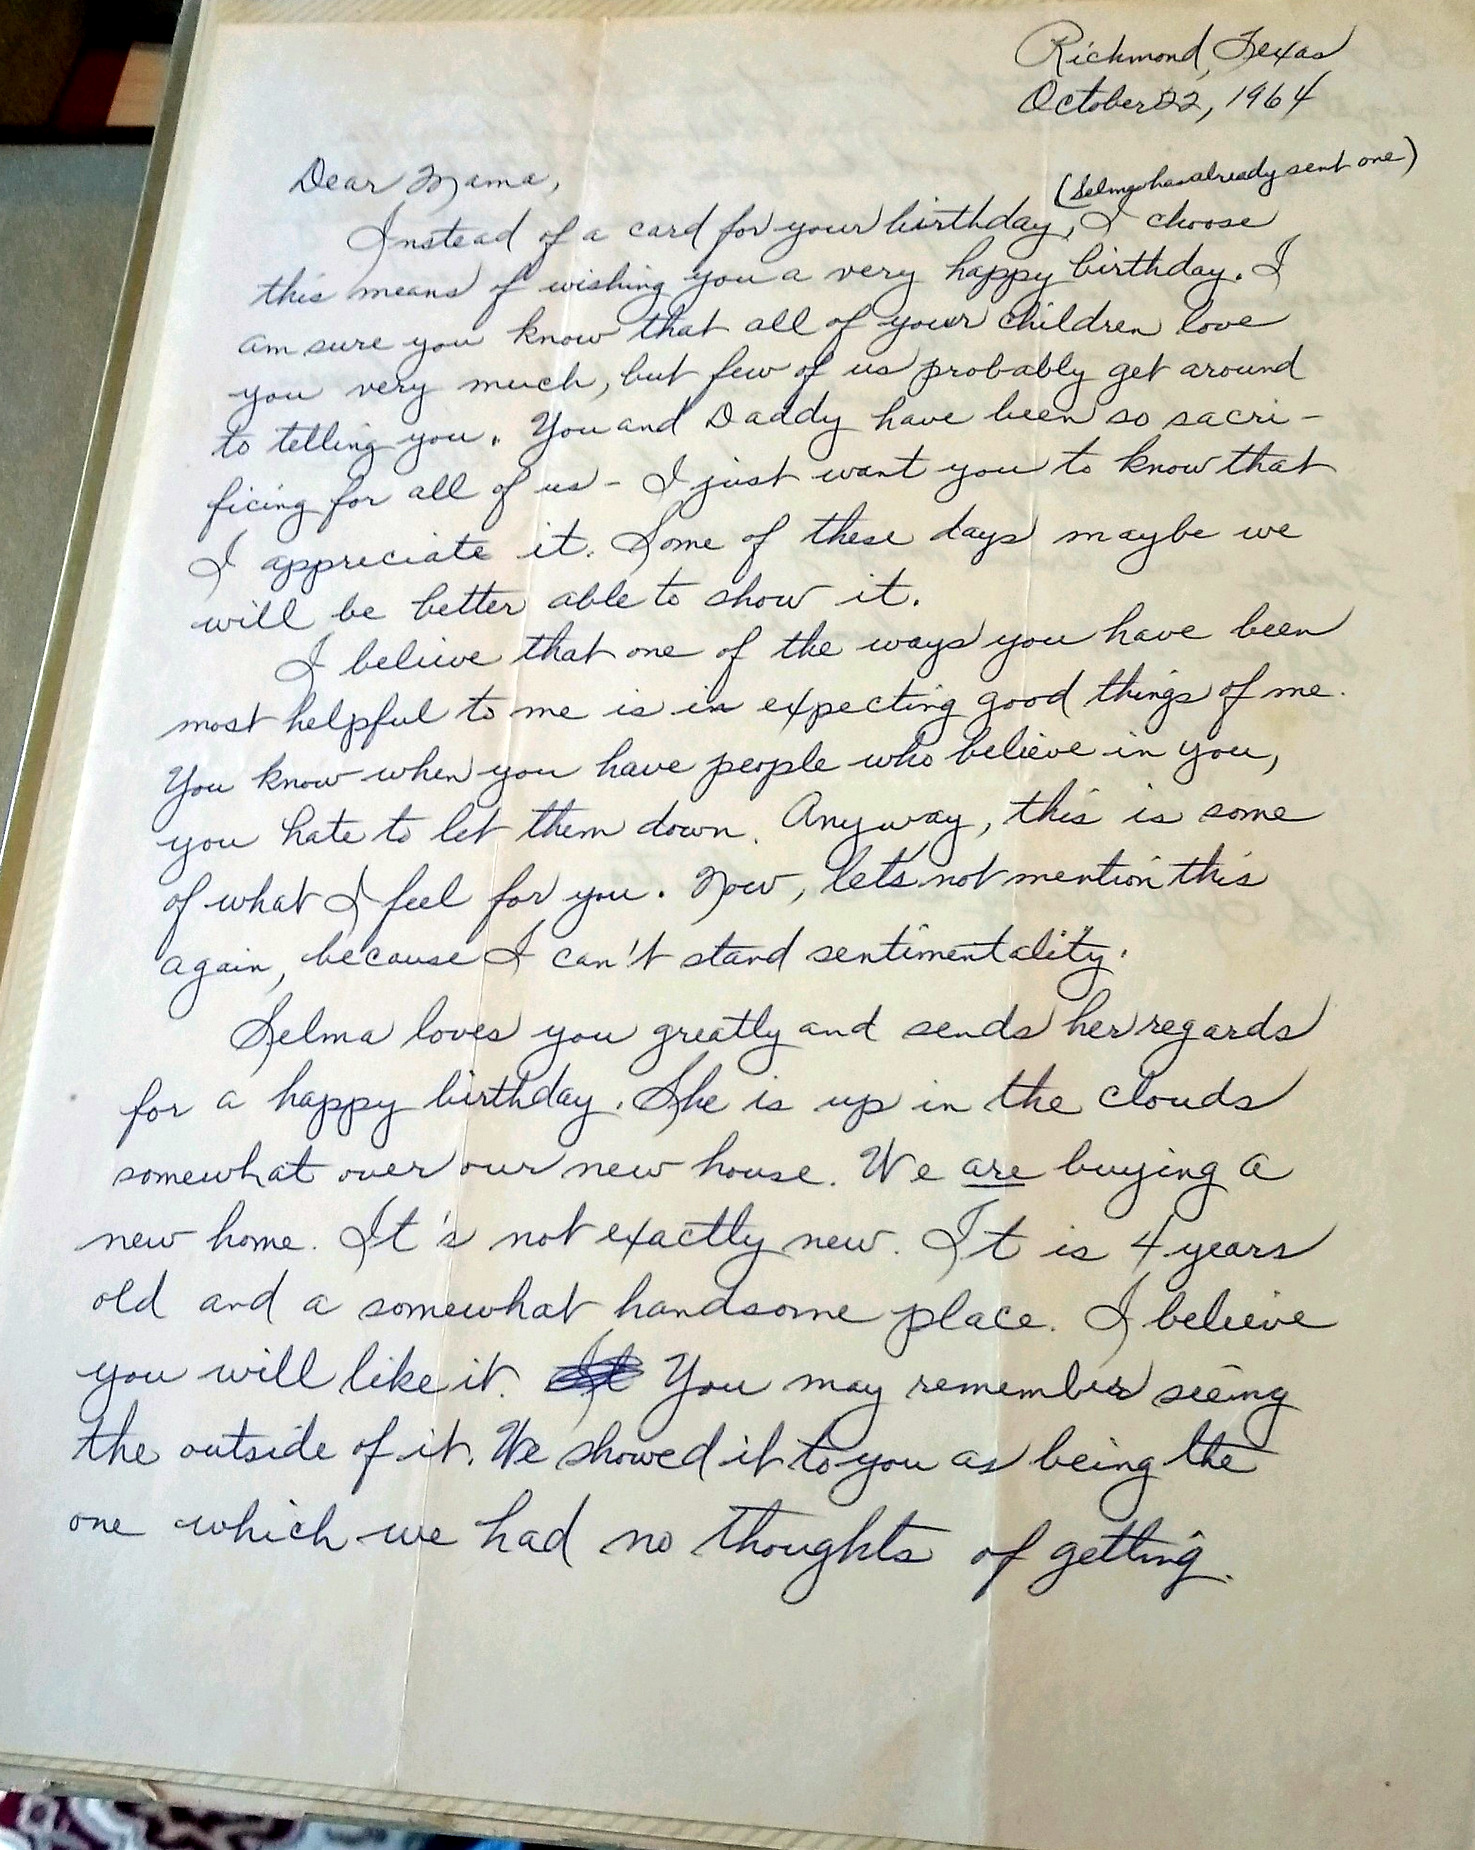 Richmond, Texas
October 22, 1964
Dear Mama,
(Selma has already sent one)
Instead of a card for your birthday, I choose
this means of wishing you a very happy birthday. I
am sure you know that all of your children love
you very much, but few of us probably get around
to telling you. You and Daddy have been so sacri-
ficing for all of us - I just want you to know that
I appreciate it. Some of these days maybe we
will be better able to show it.
I believe that one of the ways you have been
most helpful to me is in expecting good things of me.
You know when you have people who believe in you,
you hate to let them down. Anyway, this is some
of what I feel for you. Now, let's not mention this
again, because I can't stand sentimentality.
Selma loves you greatly and sends her regards
for a happy birthday. She is up in the clouds
somewhat over our new house. We are buying a
new home. It's not exactly new. It is 4 years
old and a somewhat handsome place. I believe
you will like it. You may remember seeing
the outside of it. We showed it to you as being the
one which we had no thoughts of getting.